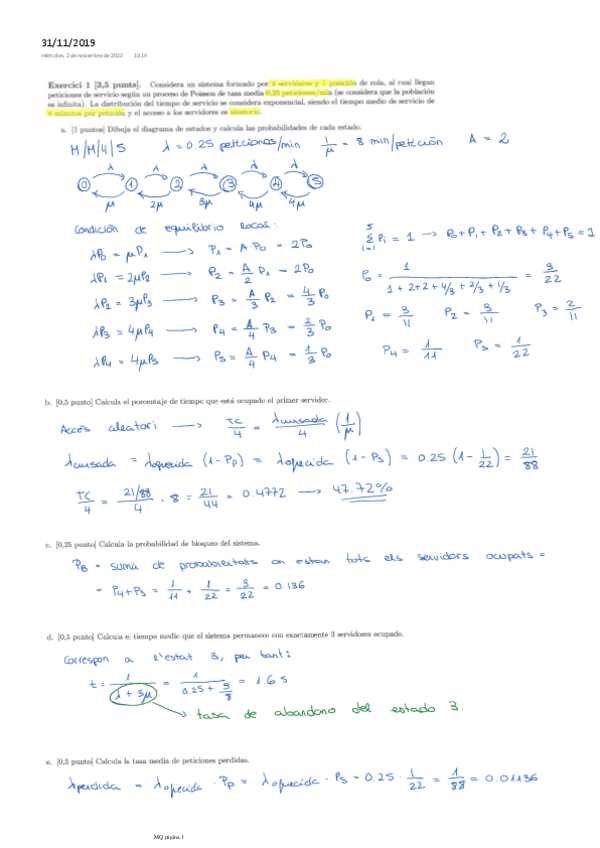 31/11/2019
miércoles, 2 de noviembre de 2022 10:14
Exercici 1 [3,5 punts]. Considera un sistema formado por 4 servidores y 1 posición de cola, al cual llegan
peticiones de servicio según un proceso de Poisson de tasa media 0,25 peticiones/min (se considera que la población
es infinita). La distribución del tiempo de servicio se considera exponencial, siendo el tiempo medio de servicio de
8 minutos por petición y el acceso a los servidores es aleatorio.
a. [1 puntos] Dibuja el diagrama de estados y calcula las probabilidades de cada estado.
M/M/4/5 λ = 0.25 peticiones/min 1/μ = 8 min/petición A = 2
λ λ λ λ λ
0 1 2 3 4 5
μ 2μ 3μ 4μ 4μ
Condición de equilibrio local:
λP0 = μP1 → P1 = A P0 = 2P0
λP1 = 2μP2 → P2 = A/2 P1 = 2P0
λP2 = 3μP3 → P3 = A/3 P2 = 4/3 P0
λP3 = 4μP4 → P4 = A/4 P3 = 2/3 P0
λP4 = 4μP5 → P5 = A/4 P4 = 1/3 P0
5 Σ i=1 Pi = 1 → P0 + P1 + P2 + P3 + P4 + P5 = 1
P0 = 1 / (1 + 2 + 2 + 4/3 + 2/3 + 1/3) = 3/22
P1 = 3/11 P2 = 3/11 P3 = 2/11
P4 = 1/11 P5 = 1/22
b. [0,5 punto] Calcula el porcentaje de tiempo que está ocupado el primer servidor.
Accés aleatori → TC/4 = λcursada/4 (1/μ)
λcursada = λofrecida (1-Pp) = λofrecida (1-P5) = 0.25 (1 - 1/22) = 21/88
TC/4 = 21/88 / 4 · 8 = 21/44 = 0.4772 → 47.72%
c. [0,25 punto] Calcula la probabilidad de bloqueo del sistema.
PB = suma de probabilitats on estan tots els servidors ocupats =
= P4 + P5 = 1/11 + 1/22 = 3/22 = 0.136
d. [0,5 punto] Calcula el tiempo medio que el sistema permanece con exactamente 3 servidores ocupado.
Correspon a l'estat 3, per tant:
t = 1 / (λ + 3μ) = 1 / (0.25 + 3/8) = 1.6 s
tasa de abandono del estado 3.
e. [0,5 punto] Calcula la tasa media de peticiones perdidas.
λperdida = λofrecida · Pp = λofrecida · P5 = 0.25 · 1/22 = 1/88 = 0.01136
MQ página 1